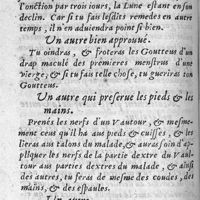 l'onction par trois iours, la Lune estant en son
declin. Car si tu fais lesdits remedes en autre
temps, il n'en aduiendra point si bien.
Un autre bien approuué.
Tu oindras, & froteras les Goutteux d'un
drap maculé des premieres menstrues d'une
vierge, & si tu fais telle chose, tu gueriras ton
Goutteux.
Un autre qui preserue les pieds & les
mains.
Prenés les nerfs d'un Vautour, & mesme-
ment ceus qu'il ha aus pieds & cuisses, & les
lieras aus talons du malade, & auras soin d'ap-
pliquer les nerfs de la partie dextre du Vau-
tour aus parties dextres du malade, & ainsi
des autres, tu feras de mesme des coudes, des
mains, & des espaules.
Un autre